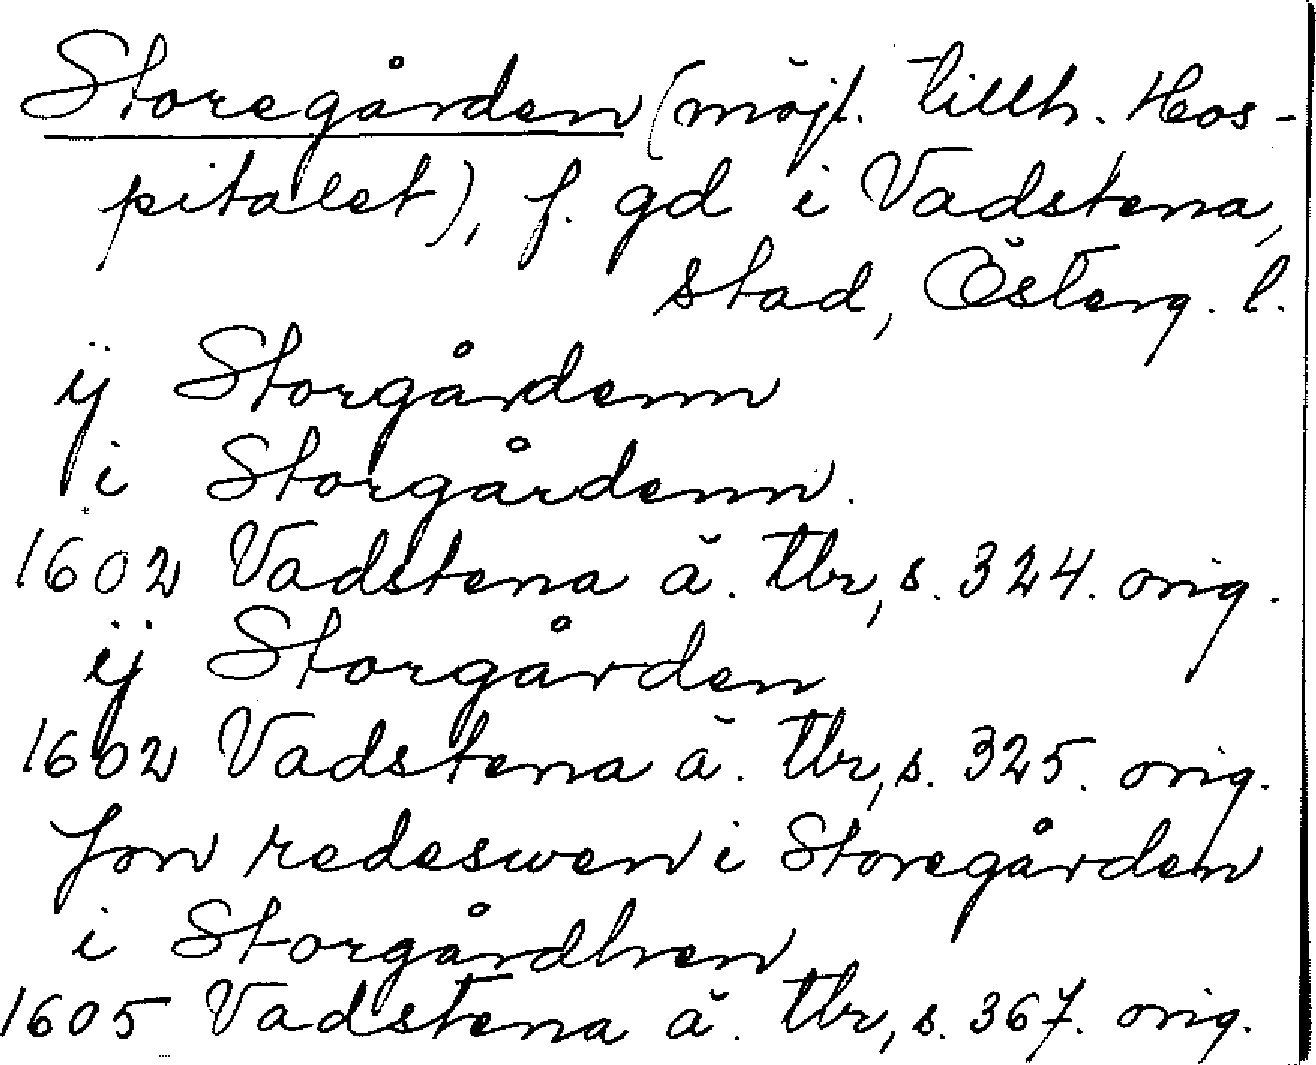 Storegården (möjl. tillh. Hos-
pitalet), f. gd i Vadstena,
stad, Österg. l.
ij Storgårdenn
i Storgårdenn.
1602 Vadstena ä. tbr, s. 324. orig.
ij Storgården
1602 Vadstena ä. tbr, s. 325. orig.
Jon redeswen i Storegården
i Storgårdhen
1605 Vadstena ä. tbr, s. 367. orig.